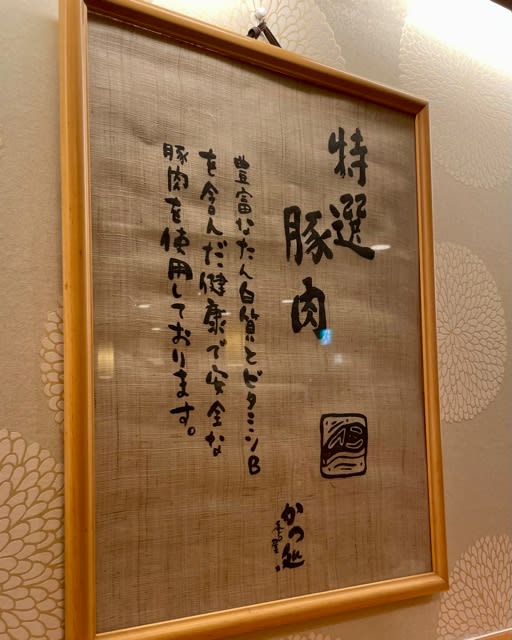 特選
豚肉
豊富なたん白質とビタミンB
を含んだ健康で安全な
豚肉を使用しております。
かつ処